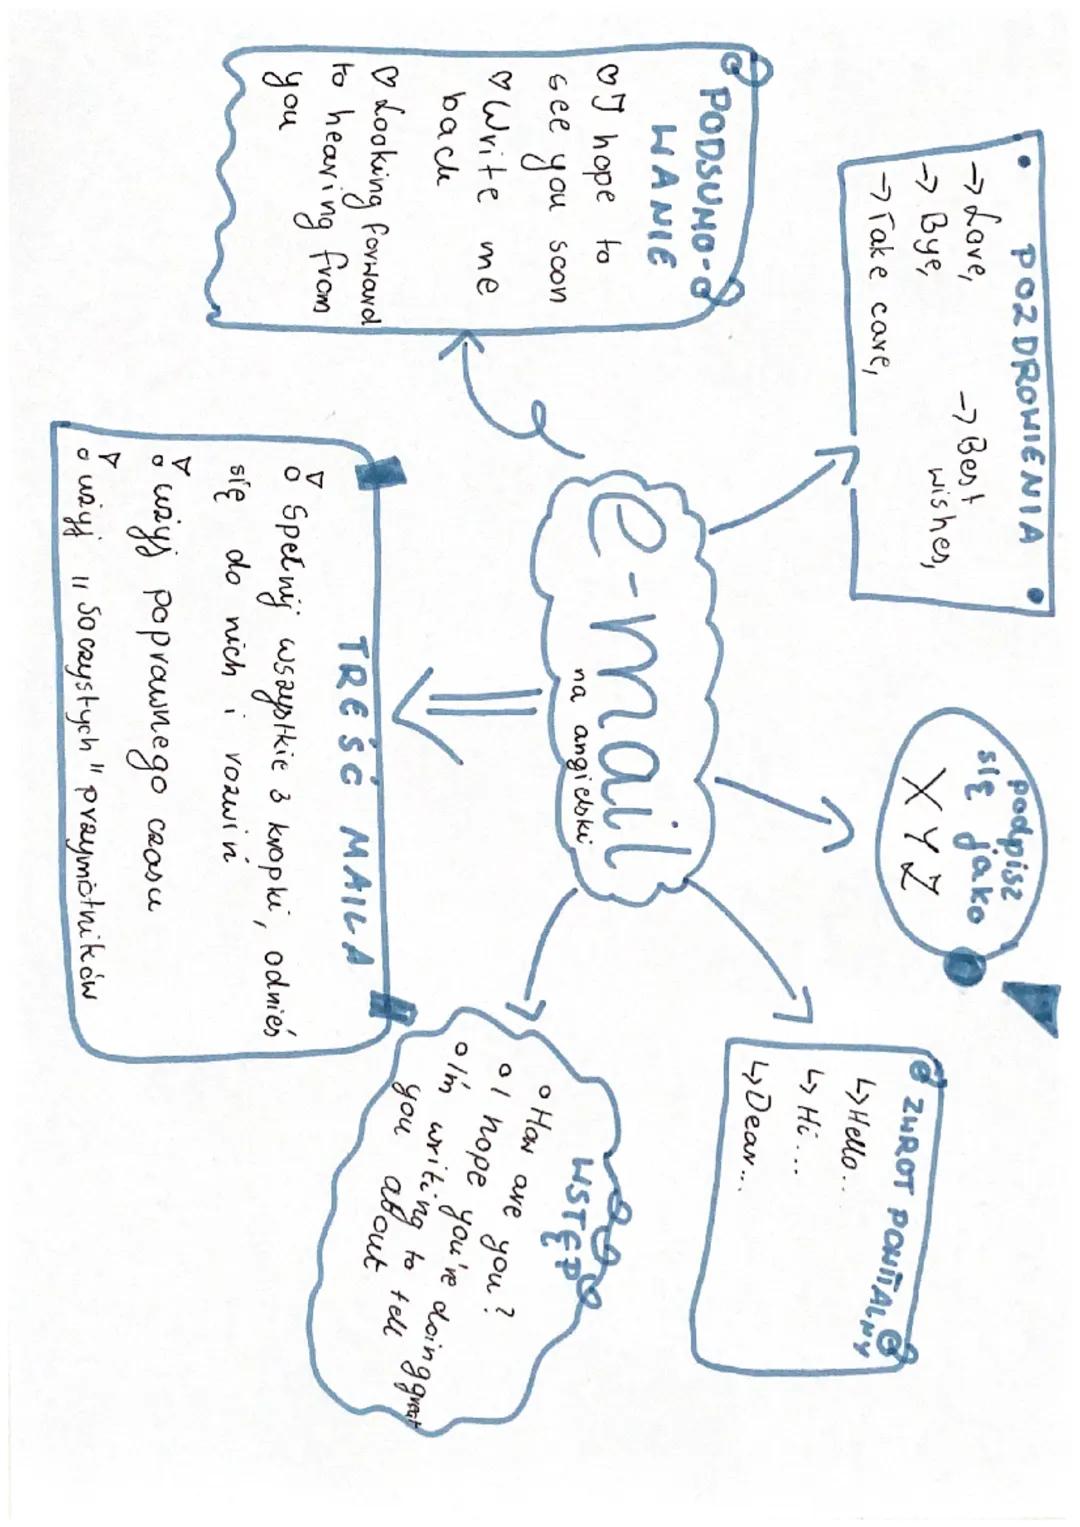 e-mail
na angielski
ZWROT POWITALNY
↳ Hello...
↳ Hi...
↳ Dear...
WSTĘP
o How are you?
o I hope you're doing great
o I'm writing to tell
you about
TREŚĆ MAILA
Spełnij wszystkie 3 kropki, odnieś
się do nich i rozwiń
użyj poprawnego czasu
użyj "soczystych" przymiotników
PODSUMO-
WANIE
♡ I hope to
see you soon
♡ Write me
back
♡ Looking forward
to hearing from
you
POZDROWIENIA
→ Love,
→ Bye,
→ Take care,
→ Best
wishes,
podpisz
się jako
XYZ